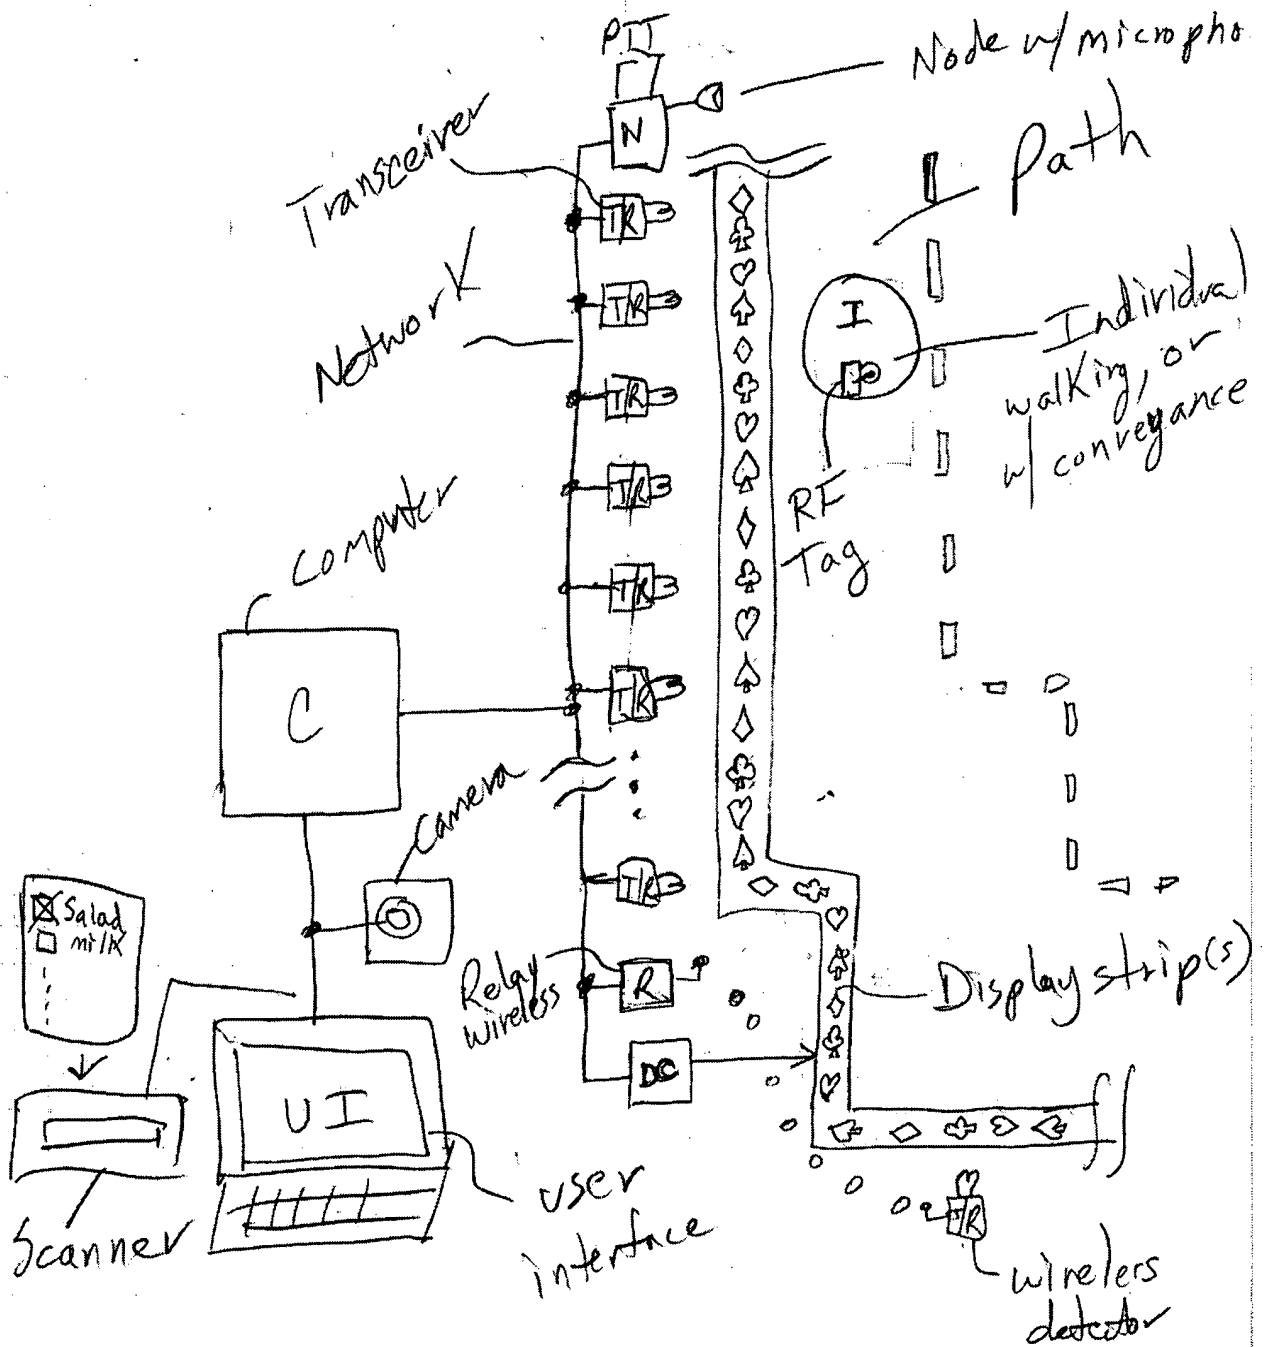 PTT
Node w/ micropho
N
Transceiver
Path
T/R
Network
T/R
I
Individual
walking, or
w/ conveyance
T/R
T/R
RF
Tag
Computer
T/R
C
T/R
Camera
T/R
Salad
milk
Relay
wireless
R
Display strip(s)
DC
UI
user
interface
Scanner
T/R
wireless
detector